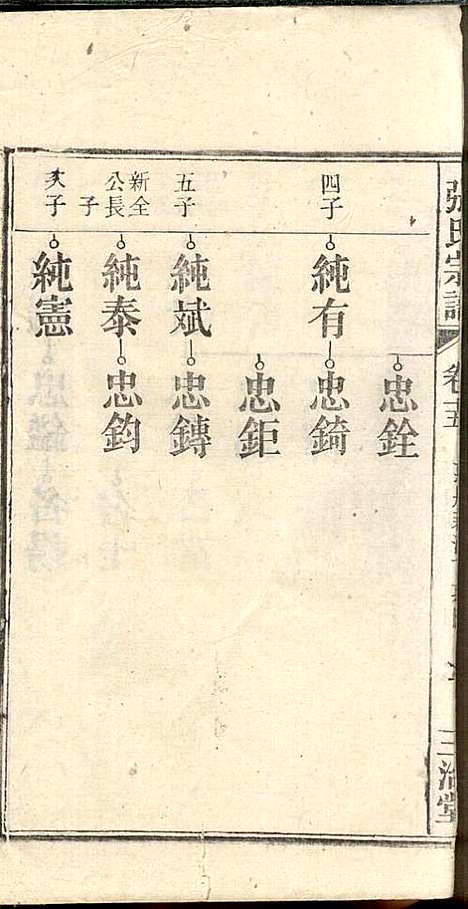 張氏宗譜
卷二五
三治堂
忠銓
四子
純有
忠錡
忠鉅
五子
純斌
忠鏄
新全
公長
子
純泰
忠鈞
次子
純憲